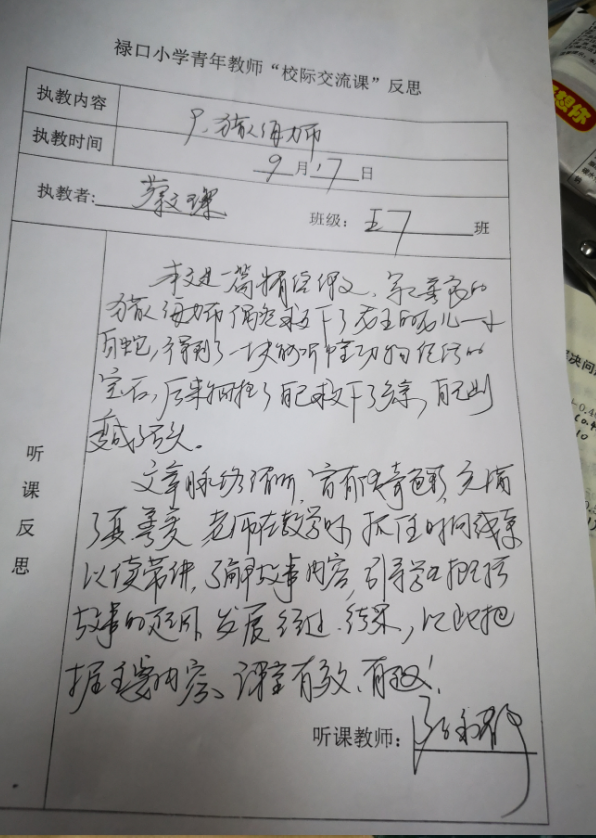 禄口小学青年教师“校际交流课”反思
执教内容 9、猎人海力布
执教时间 9月17日
执教者: 蔡文 班级: 五7班
听课反思
本文是一篇精经课文,
猎人海力布偶然救下了龙王的女儿—小
白蛇,得到了一块能听懂动物说话的
宝石,后来牺牲了自己救下了乡亲,自己则
变成了石头。
文章脉络清晰,富有传奇色彩,充满
了真善美 老师在教学时,抓住时间线索
以读带讲,了解故事内容,引导学生概括
故事的起因、发展、经过、结果,以此把
握主要内容。课堂有效、有趣!
听课教师:
想你
决问